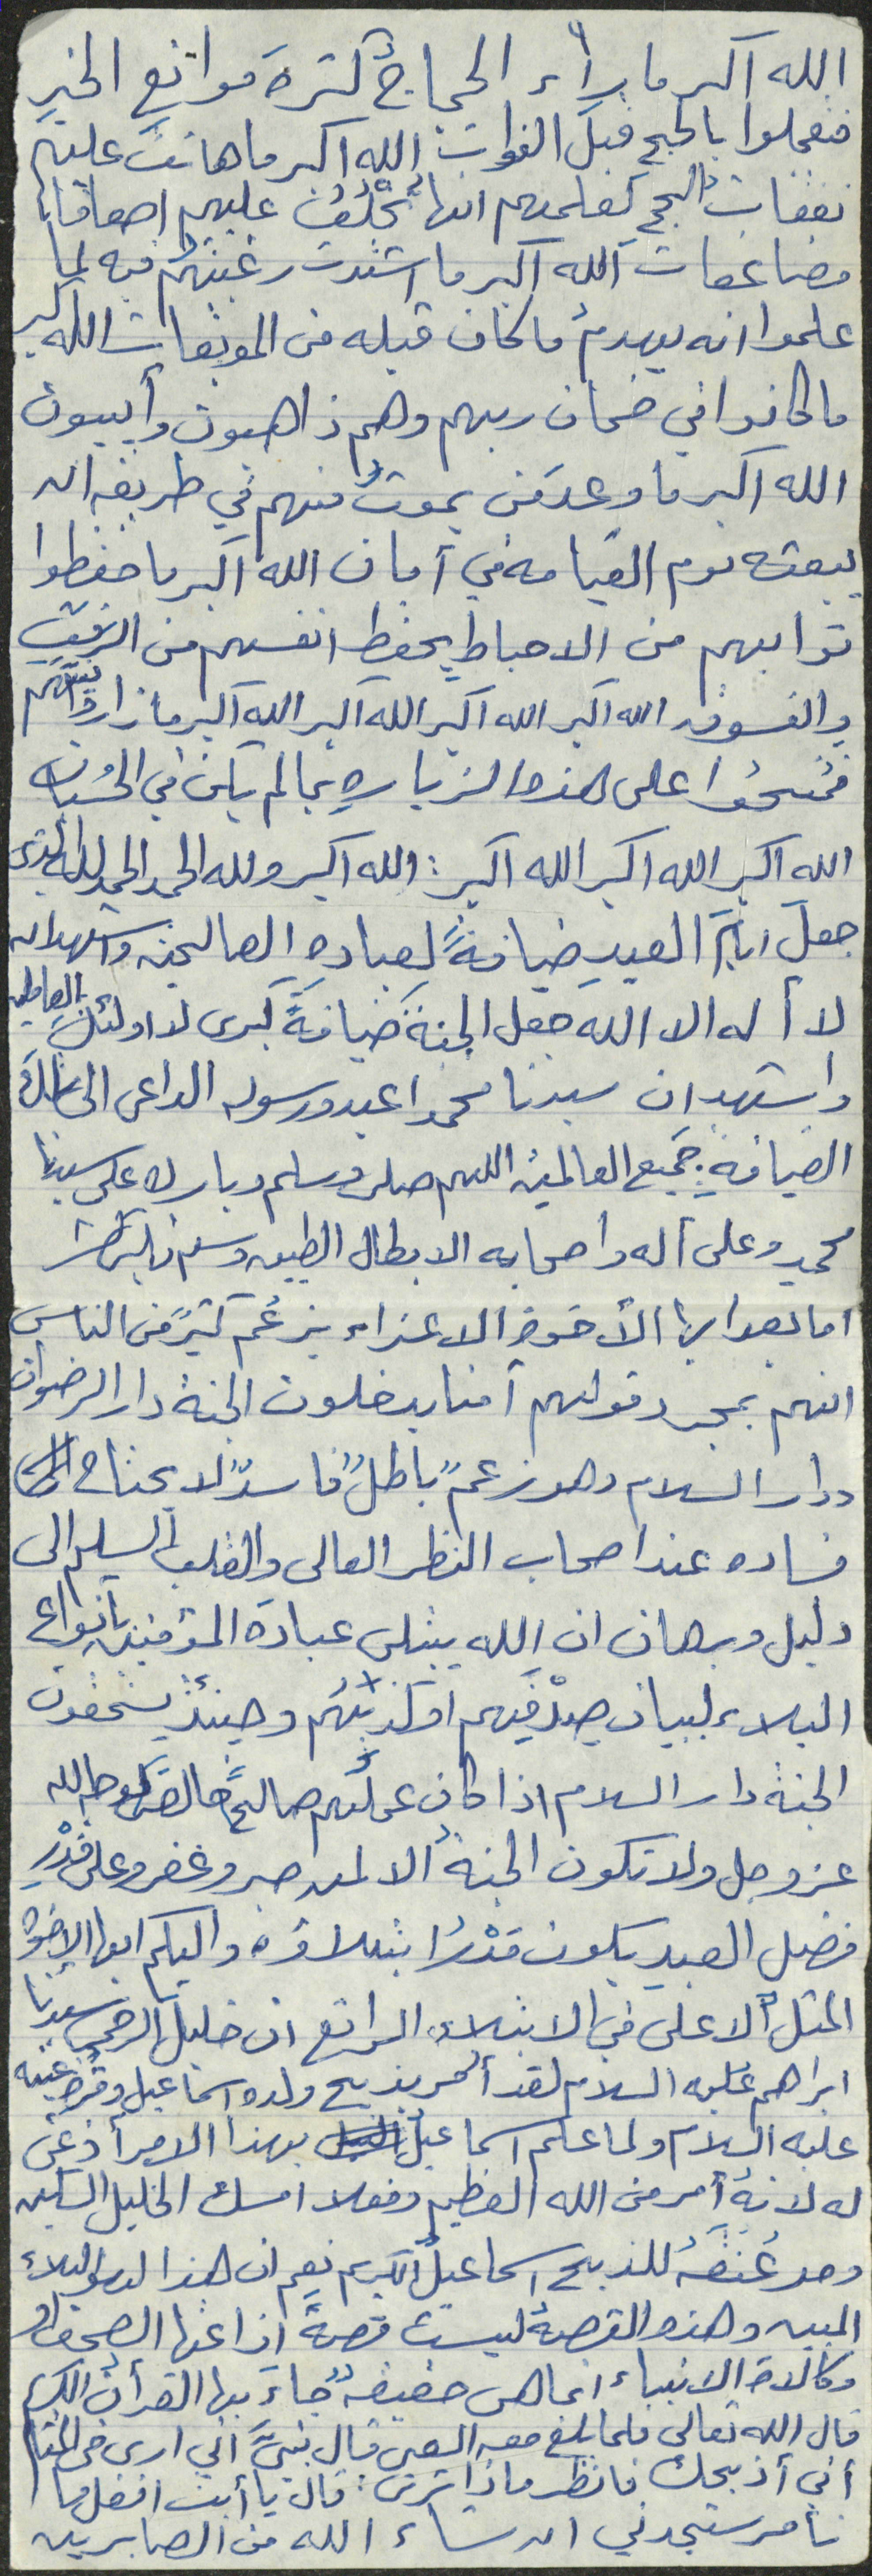 الله اكبر ما رأء الحجاج كثرة موانع الخير
فتعجلوا بالحج قبل الفوات الله اكبر ما هانت عليهم
نفقات الحج لعلمهم انها تُخْلَفُ عليهم اضعافا
مضاعفات الله اكبر ما اشتدت رغبتهم فيه لما
علموا انه يهدم ما كان قبله من الموبقات الله اكبر
ما كانوا في ضمان ربهم وهم ذاهبون وأيبون
الله اكبر ما وعد من يموت منهم في طريقه ان
يبعثه يوم القيامه في أمان الله اكبر ما حفظوا
ثوابهم من الاحباط بحفظ انفسهم من الرفث
والفسوق الله اكبر الله اكبر الله اكبر الله اكبر ما زاروا نبيهم
فمُنحُوا على هذه الزياره بما لم يكن في الحُسبان
الله اكبر الله اكبر الله اكبر : الله اكبر ولله الحمد الحمد لله الذى
جعل ايامَ العيدِ ضيافةً لعبادهِ الصالحين واشهد ان
لا أله الا الله جعل الجنة ضيافةً كبرى لاولئك العاملين
واشهد ان سيدنا محمدا عبده ورسوله الداعى الى تلك
الضيافةِ جميع العالمين اللهم صلى وسلم وبارك على سيدنا
محمد وعلى أله واصحابه الابطال الطيبين وسلم
اما بعد ايها الأخوة الاعزاء يزعُم كثيرٌ من الناس
انهم بمجرد قولهم أمنا يدخلون الجنة دار الرضوان
ودار السلام وهو زعمٌ باطلٌ فاسدٌ لا يحتاج
فساده عند اصحاب النظر العالى والقلب السليم الى
دليل وبرهان ان الله يبتلى عبادَه المؤمنين بأنواع
البلاء لبيان صِدْقِهم او كذبِهُم وحينئذٍ يستحقون
الجنة دار السلام اذا كان عملُهم صالحًا خالصًا لوجه الله
عز وجل ولا تكون الجنةُ الا لمن صبر وغفر وعلى قَدْرِ
فضل العبد يكون قَدْرُ ابتلاؤه واليكم ايها الاخوة
المثل ألاعلى فى الابتلاء الرائع ان خليل الرحمن سيدنا
ابراهم عليه السلام لقد أُمر بذبح ولده اسماعيل وقُرة عينه
عليه السلام ولما علم اسماعيل بهذا الامر أذعن
له لانهُ أمر من الله العظيم وفعلا امسك الخليل السكين
ومد عُنقَهُ للذبح اسماعيلُ الكريم نعم ان هذا لهو البلاء
المبين وهذه القصةُ ليست قصةً اذاعتها الصحف او
وكالات الانباء انما هى حقيقةٌ جاءَ بها القرأن الكريم
قال الله تعالى فلما بلغ معه السعى قال يبُنىَّ اني ارى فى المنام
أني أذبحك فانظر ماذا ترى : قال يا أبت افعل ما
تأمر ستجدني ان شاء الله من الصابرين